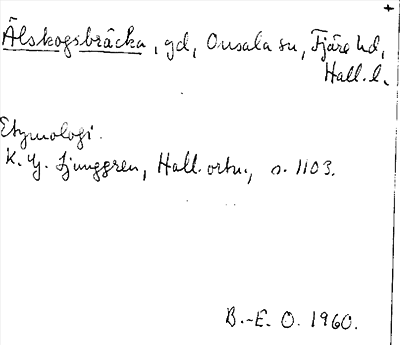 +
Älskogsbräcka, gd, Onsala sn, Fjäre hd,
Hall. l.
Etymologi.
K. G. Ljunggren, Hall. ortn., s. 1103.
B.-E. O. 1960.